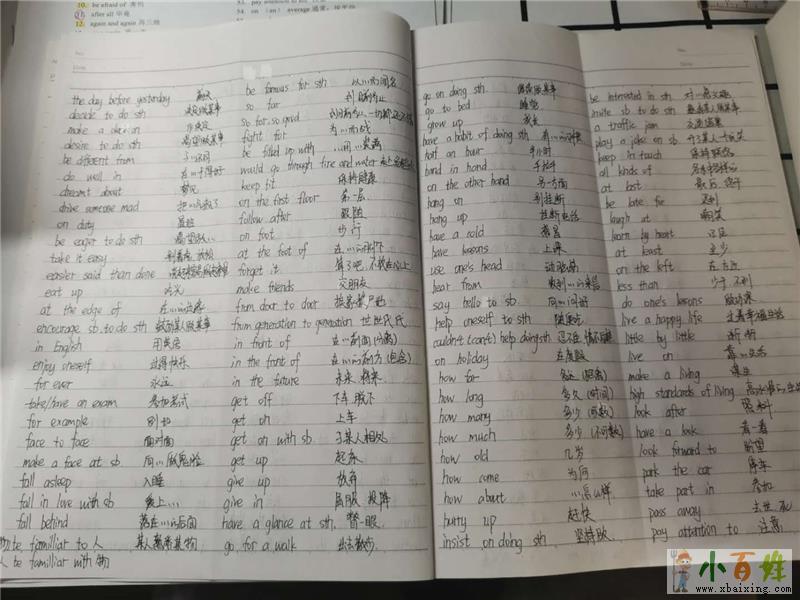 10. be afraid of 害怕
11. after all 毕竟
12. again and again 再三地
the day before yesterday 前天
decide to do sth 决定做某事
make a decision 作决定
desire to do sth 渴望做某事
be different from 与…不同
do well in 在…干得好
dreamt about 梦见
drive someone mad
on duty 值班
be eager to do sth 渴望做…
take it easy
easier said than done
eat up 吃光
at the edge of 在…的边缘
encourage sb. to do sth 鼓励某人做某事
in English 用英语
enjoy oneself 过得快乐
for ever 永远
take/have an exam 参加考试
for example 例如
face to face 面对面
make a face at sb 向…做鬼脸
fall asleep 入睡
fall in love with sb 爱上…
fall behind 落在…的后面
物 be familiar to 人 某人熟悉某物
人 be familiar with 物
be famous for sth 以…而闻名
so far 到目前为止
so far so good
fight for 为…而战
be filled up with …用…充满
would go through fire and water
keep fit 保持健康
on the first floor 第一层
follow after 跟随
on foot 步行
at the foot of 在…的脚下
forget it
make friends 交朋友
from door to door 挨家挨户地
from generation to generation 世世代代
in front of 在…前面(分离)
in the front of 在…的前方(包含)
in the future 未来 将来
get off 下车 脱下
get on 上车
get on with sb 与某人相处
get up 起床
give up 放弃
give in 屈服 投降
have a glance at sth. 瞥一眼
go for a walk 出去散步
go on doing sth. 继续做某事
go to bed 睡觉
grow up 成长
have a habit of doing sth 有…的习惯
half an hour 半小时
hand in hand 手拉手
on the other hand 另一方面
hang on 别挂断
hang up 挂断电话
have a cold 感冒
have lessons 上课
use one's head 动脑筋
hear from 收到…的来信
say hello to sb 向…问好
help oneself to sth 随便吃
couldn't (can't) help doing sth 忍不住 情不自禁
on holiday 在度假
how far 多远 (距离)
how long 多久 (时间)
how many 多少 (可数)
how much 多少 (不可数)
how old 几岁
how come 为何
how about …怎么样
hurry up 赶快
insist on doing sth 坚持做
be interested in sth 对…感兴趣
invite sb to do sth 邀请某人做某事
a traffic jam 交通堵塞
play a joke on sb 开某人一个玩笑
keep in touch 保持联络
all kinds of 各种各样的
at last 最后 终于
be late for 迟到
laugh at 嘲笑
learn by heart 记住
at least 至少
on the left 在左边
less than 少于 不到
do one's lessons 做功课
live a happy life 过着幸福生活
little by little 渐渐
live on 靠…生活
make a living 谋生
high standards of living
look after 照料
have a look 看一看
look forward to 盼望
park the car 停车
take part in 参加
pass away 去世 死
pay attention to 注意
小百姓
www.xbaixing.com